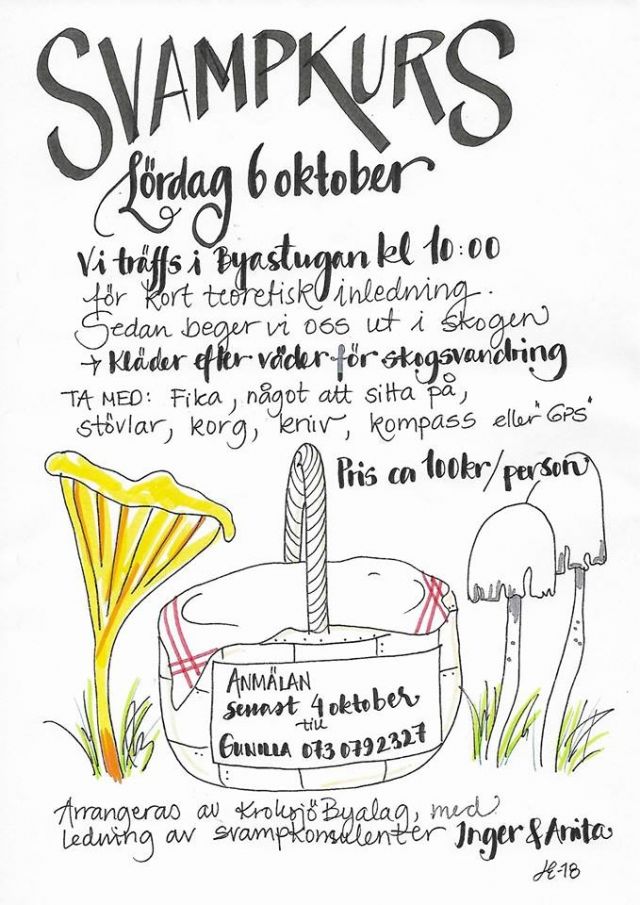 SVAMPKURS
Lördag 6 oktober
Vi träffs i Byastugan kl 10:00
för kort teoretisk inledning.
Sedan beger vi oss ut i skogen
→ Kläder efter väder för skogsvandring
TA MED: Fika, något att sitta på,
stövlar, korg, kniv, kompass eller "GPS"
Pris ca 100kr/person
ANMÄLAN
senast 4 oktober
till
GUNILLA 073 0792327
Arrangeras av Kroksjö Byalag, med
ledning av svampkonsulenter Inger & Anita
-18